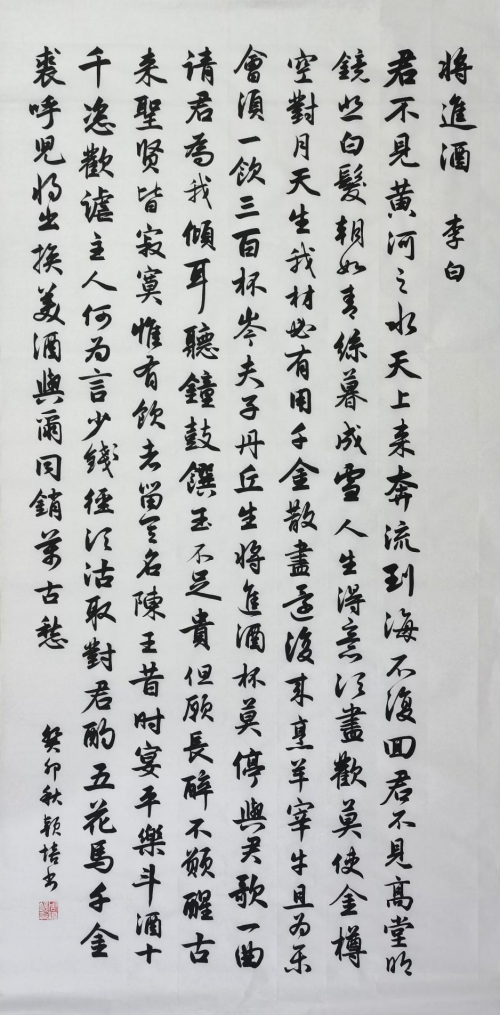 将進酒 李白
君不見黄河之水天上来奔流到海不復回君不見高堂明
鏡悲白髮朝如青絲暮成雪人生得意须盡歡莫使金樽
空對月天生我材必有用千金散盡還復来烹羊宰牛且为乐
會須一飲三百杯岑夫子丹丘生將進酒杯莫停與君歌一曲
请君為我傾耳聽鐘鼓饌玉不足貴但願長醉不願醒古
来聖贤皆寂寞惟有飲者留其名陳王昔时宴平樂斗酒十
千恣歡謔主人何为言少錢徑须沽取對君酌五花馬千金
裘呼児将出换美酒與爾同銷萬古愁
癸卯秋颖培书